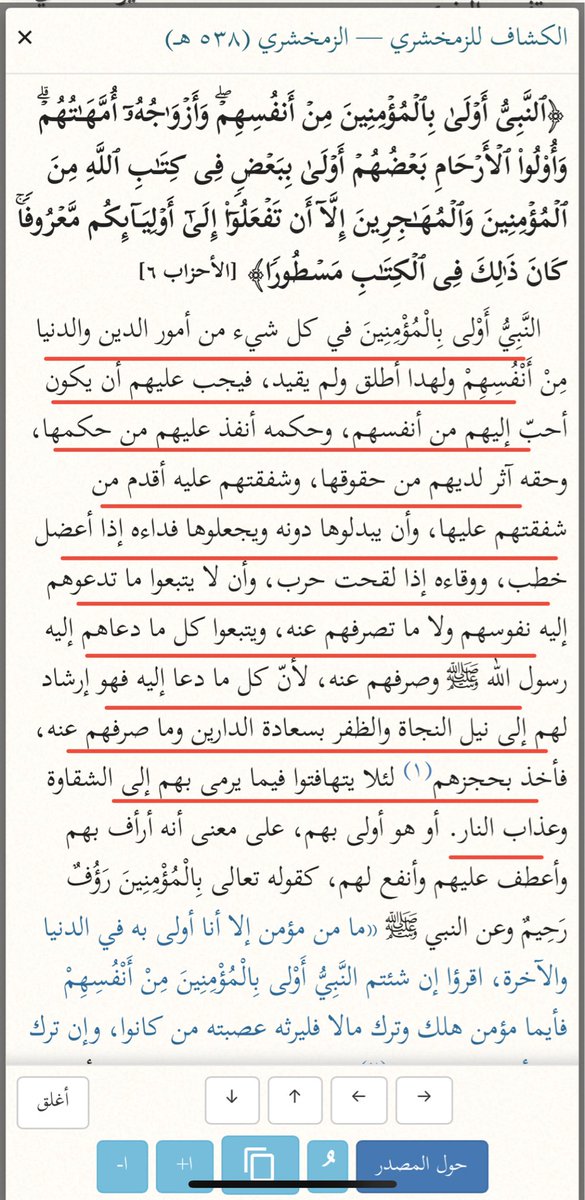 الكشاف للزمخشري — الزمخشري (٥٣٨ هـ)
×
﴿ٱلنَّبِیُّ أَوۡلَىٰ بِٱلۡمُؤۡمِنِینَ مِنۡ أَنفُسِهِمۡۖ وَأَزۡوَ ٰ⁠جُهُۥۤ أُمَّهَـٰتُهُمۡۗ
وَأُو۟لُوا۟ ٱلۡأَرۡحَامِ بَعۡضُهُمۡ أَوۡلَىٰ بِبَعۡضࣲ فِی كِتَـٰبِ ٱللَّهِ مِنَ
ٱلۡمُؤۡمِنِینَ وَٱلۡمُهَـٰجِرِینَ إِلَّاۤ أَن تَفۡعَلُوۤا۟ إِلَىٰۤ أَوۡلِیَاۤىِٕكُم مَّعۡرُوفࣰاۚ
كَانَ ذَ ٰ⁠لِكَ فِی ٱلۡكِتَـٰبِ مَسۡطُورࣰا﴾ [الأحزاب ٦]
النَّبِيُّ أَوْلى بِالْمُؤْمِنِينَ في كل شيء من أمور الدين والدنيا
مِنْ أَنْفُسِهِمْ ولهدا أطلق ولم يقيد، فيجب عليهم أن يكون
أحبّ إليهم من أنفسهم، وحكمه أنفذ عليهم من حكمها،
وحقه آثر لديهم من حقوقها، وشفقتهم عليه أقدم من
شفقتهم عليها، وأن يبدلوها دونه ويجعلوها فداءه إذا أعضل
خطب، ووقاءه إذا لقحت حرب، وأن لا يتبعوا ما تدعوهم
إليه نفوسهم ولا ما تصرفهم عنه، ويتبعوا كل ما دعاهم إليه
رسول الله ﷺ وصرفهم عنه، لأنّ كل ما دعا إليه فهو إرشاد
لهم إلى نيل النجاة والظفر بسعادة الدارين وما صرفهم عنه،
فأخذ بحجزهم(١) لئلا يتهافتوا فيما يرمى بهم إلى الشقاوة
وعذاب النار. أو هو أولى بهم، على معنى أنه أرأف بهم
وأعطف عليهم وأنفع لهم، كقوله تعالى بِالْمُؤْمِنِينَ رَؤُفٌ
رَحِيمٌ وعن النبي ﷺ «ما من مؤمن إلا أنا أولى به في الدنيا
والآخرة، اقرؤا إن شئتم النَّبِيُّ أَوْلى بِالْمُؤْمِنِينَ مِنْ أَنْفُسِهِمْ
فأيما مؤمن هلك وترك مالا فليرثه عصبته من كانوا، وإن ترك
→ ← ↑ ↓ أغلق
حول المصدر ا+ ا-